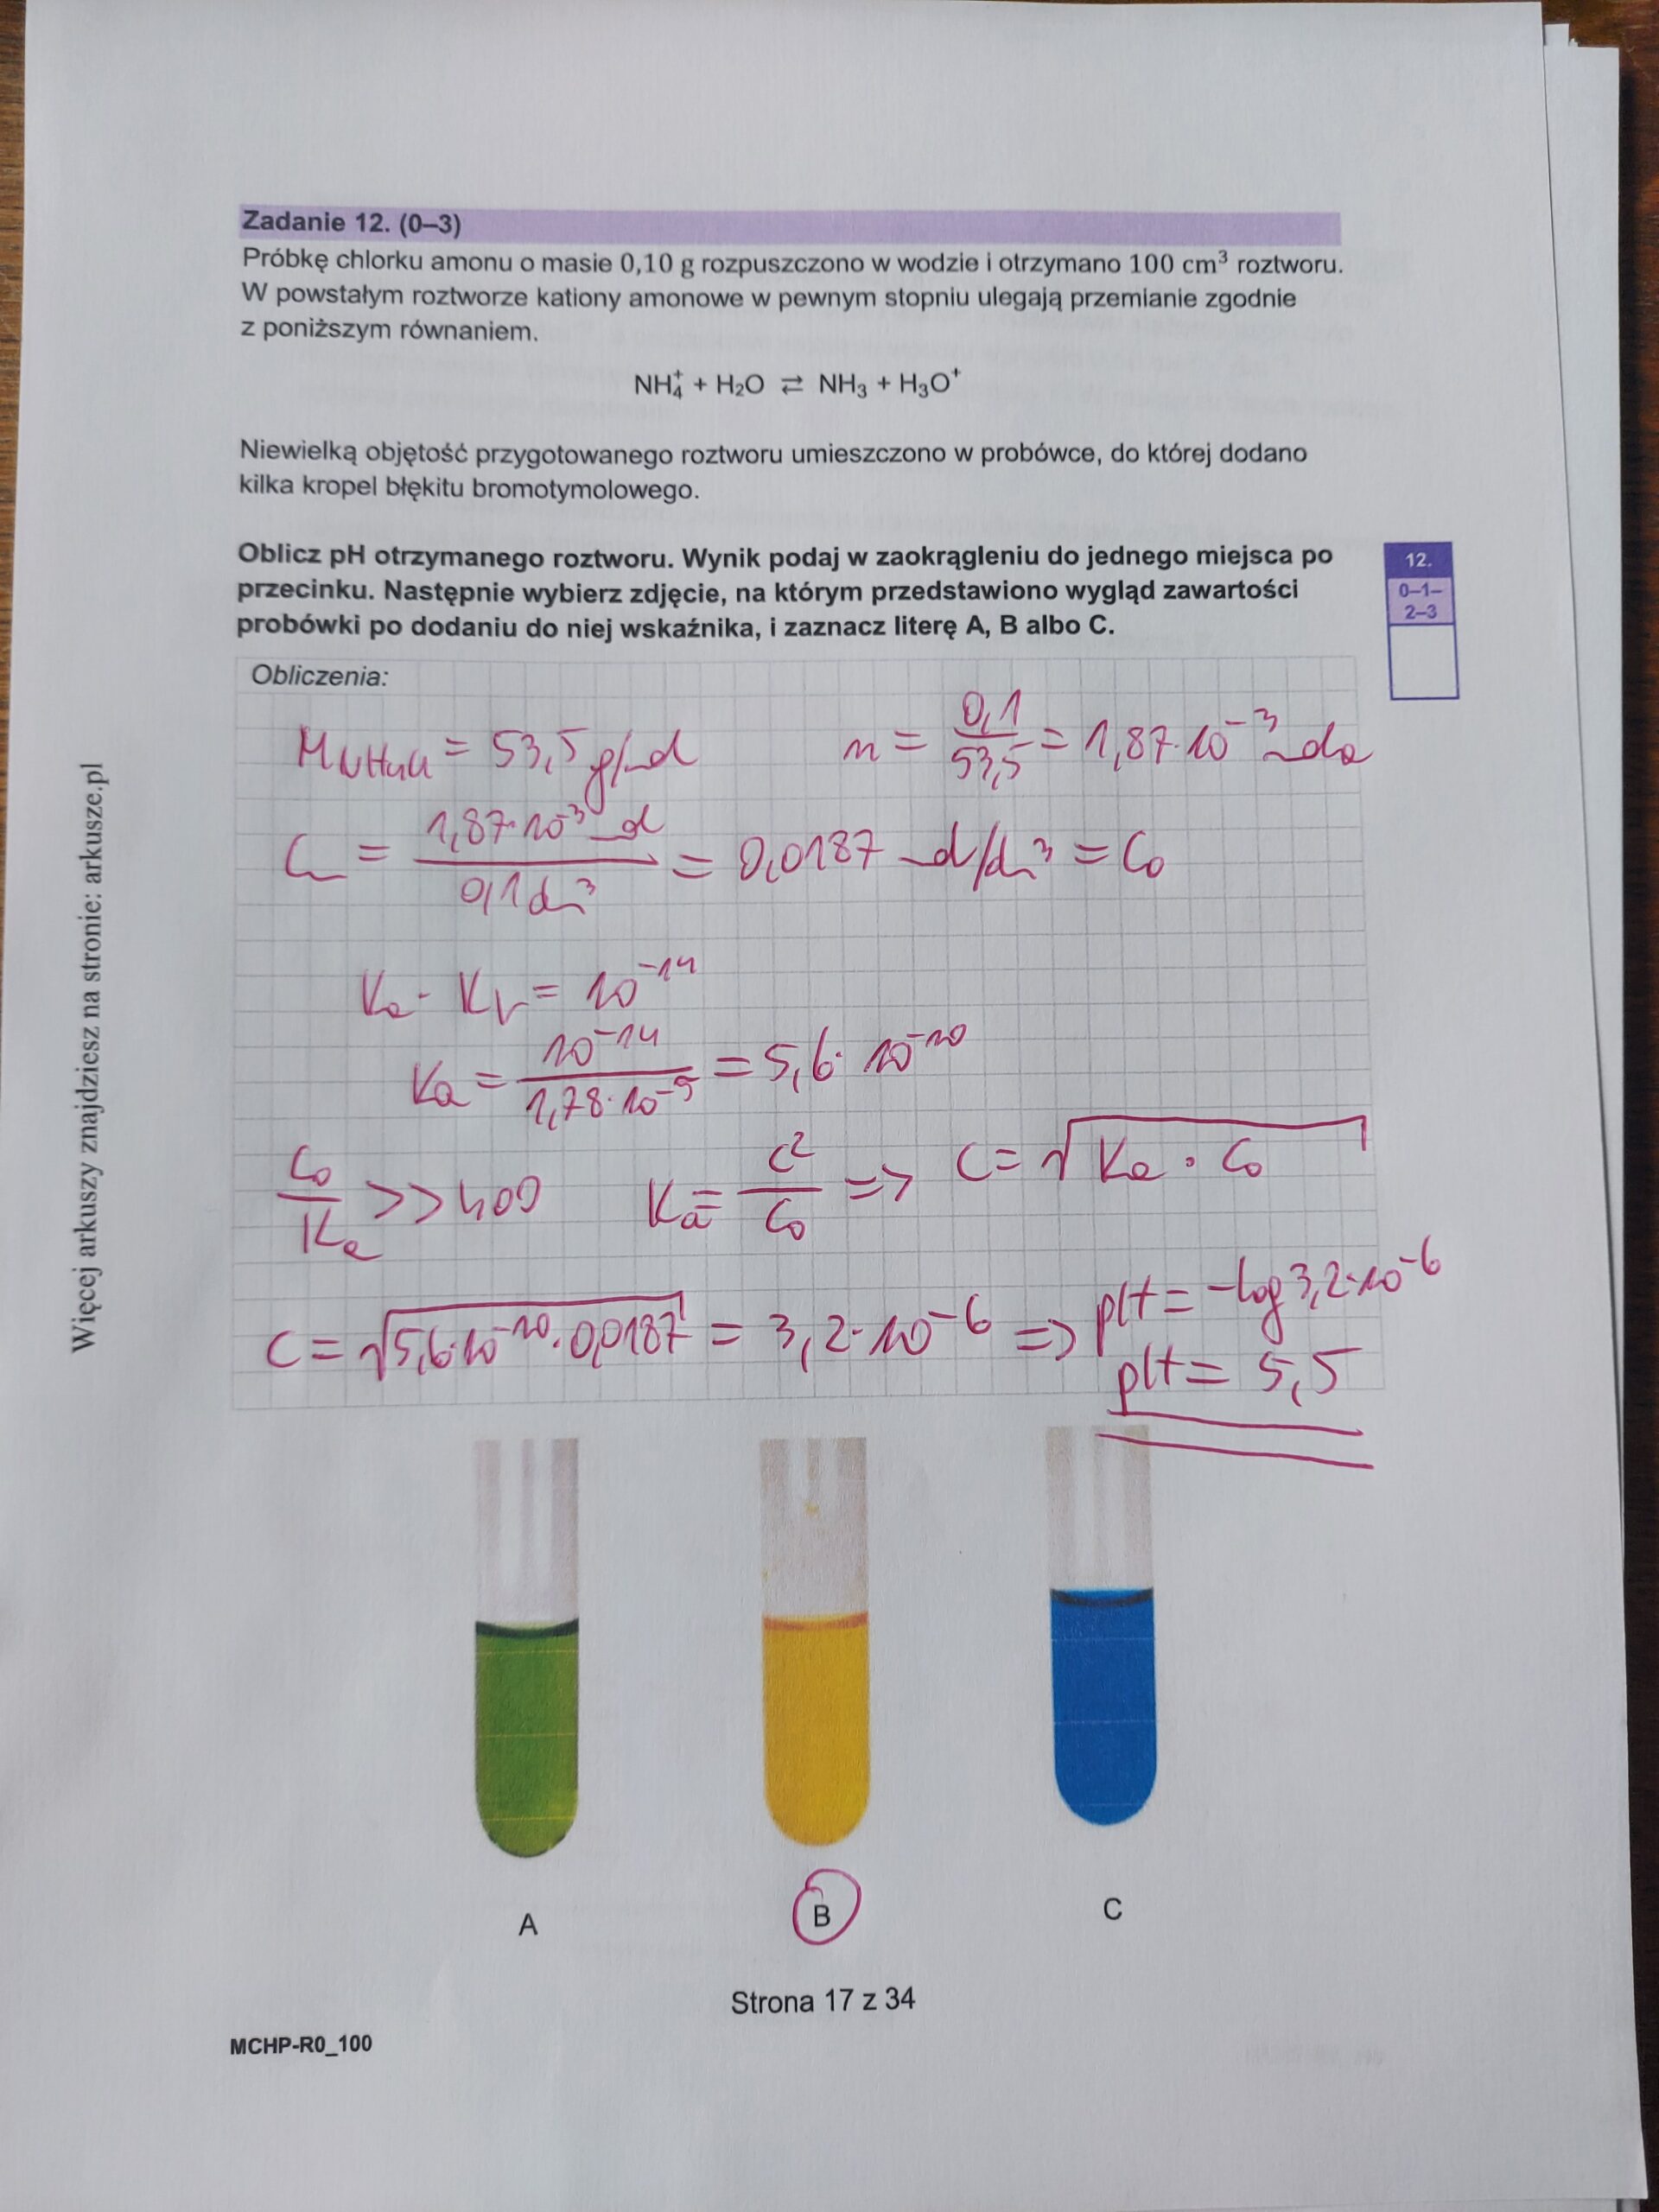 Zadanie 12. (0–3)
Próbkę chlorku amonu o masie 0,10 g rozpuszczono w wodzie i otrzymano 100 cm³ roztworu.
W powstałym roztworze kationy amonowe w pewnym stopniu ulegają przemianie zgodnie
z poniższym równaniem.
NH₄⁺ + H₂O ⇄ NH₃ + H₃O⁺
Niewielką objętość przygotowanego roztworu umieszczono w probówce, do której dodano
kilka kropel błękitu bromotymolowego.
Oblicz pH otrzymanego roztworu. Wynik podaj w zaokrągleniu do jednego miejsca po
przecinku. Następnie wybierz zdjęcie, na którym przedstawiono wygląd zawartości
probówki po dodaniu do niej wskaźnika, i zaznacz literę A, B albo C.
12.
0–1–
2–3
Obliczenia:
M NH₄Cl = 53,5 g/mol n = 0,1/53,5 = 1,87·10⁻³ mola
Cm = 1,87·10⁻³ mol / 0,1 dm³ = 0,0187 mol/dm³ = C₀
Ka · Kb = 10⁻¹⁴
Ka = 10⁻¹⁴ / 1,78·10⁻⁵ = 5,6·10⁻¹⁰
C₀/Ka >> 400 Ka = C²/C₀ => C = √(Ka · C₀)
C = √(5,6·10⁻¹⁰·0,0187) = 3,2·10⁻⁶ => pH = -log 3,2·10⁻⁶
pH = 5,5
A
B
C
Strona 17 z 34
MCHP-R0_100
Więcej arkuszy znajdziesz na stronie: arkusze.pl